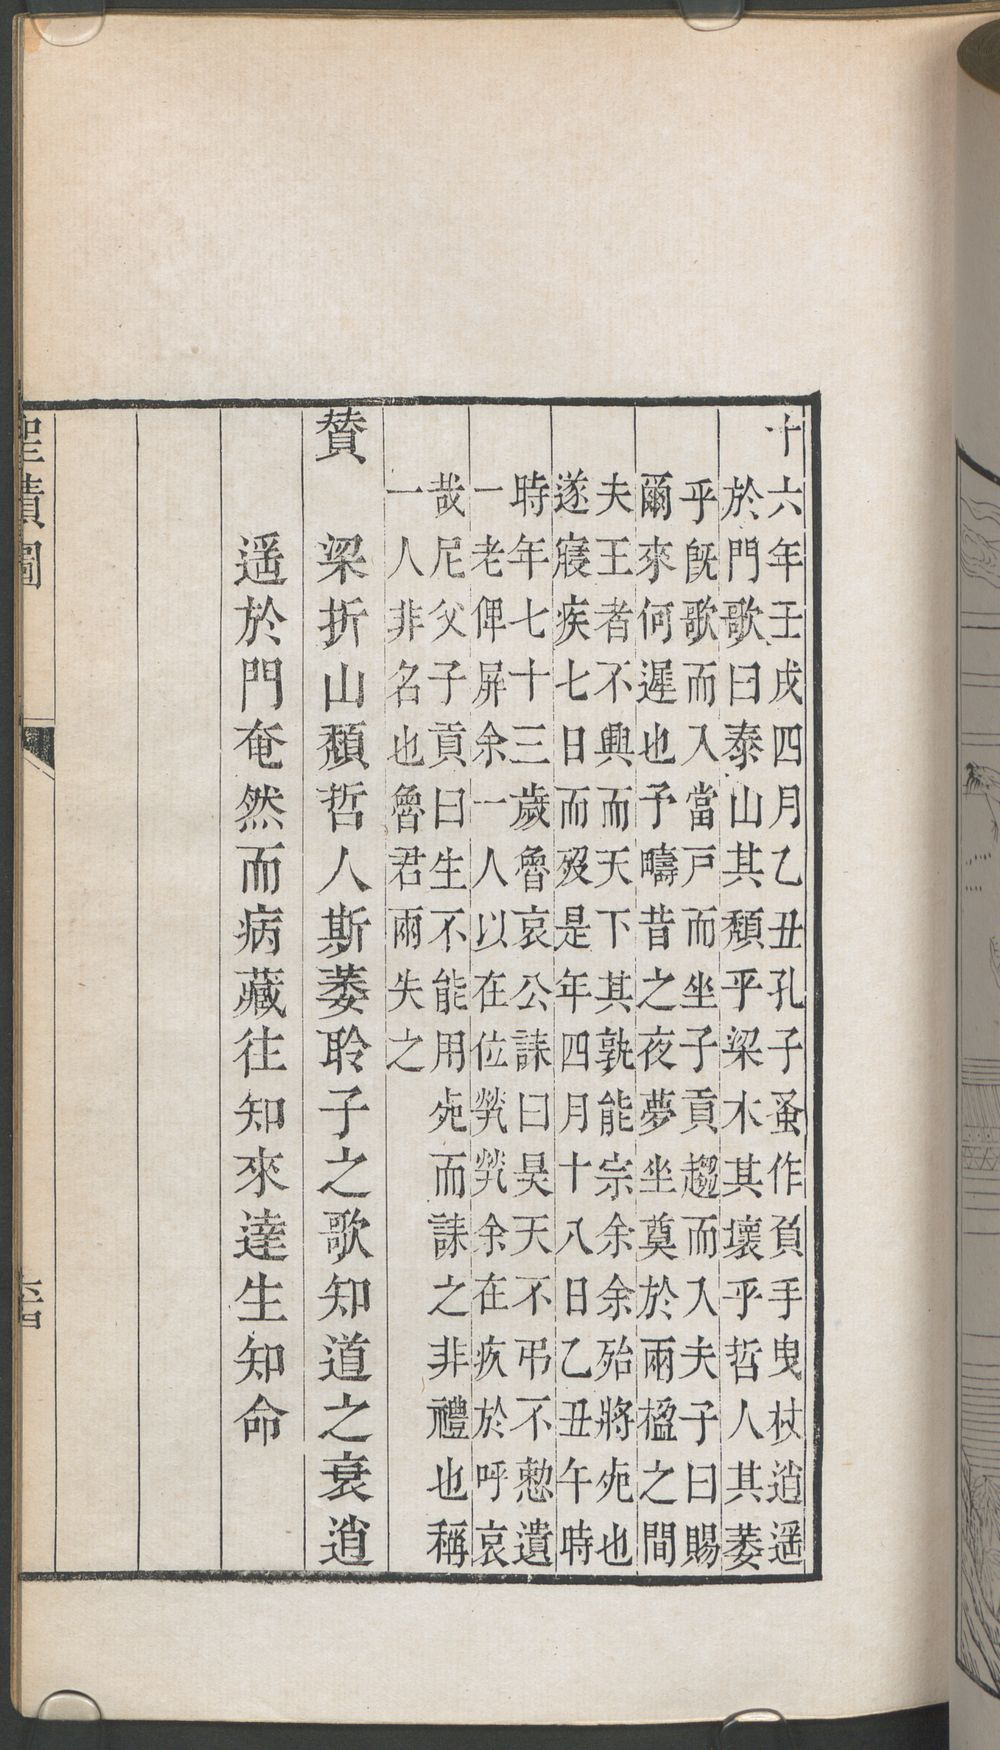 十六年壬戌四月乙丑孔子蚤作負手曳杖逍遥
於門歌曰泰山其頹乎梁木其壞乎哲人其萎
乎旣歌而入當戸而坐子貢趨而入夫子曰賜
爾來何遲也予疇昔之夜夢坐奠於兩楹之間
夫王者不興而天下其孰能宗余余殆將死也
遂寢疾七日而歿是年四月十八日乙丑午時
時年七十三歲魯哀公誄曰昊天不弔不憖遺
一老俾屏余一人以在位煢煢余在疚於呼哀
哉尼父子貢曰生不能用死而誄之非禮也稱
一人非名也魯君兩失之
賛
梁折山頹哲人斯萎聆子之歌知道之衰逍
遥於門奄然而病藏往知來達生知命
聖蹟圖